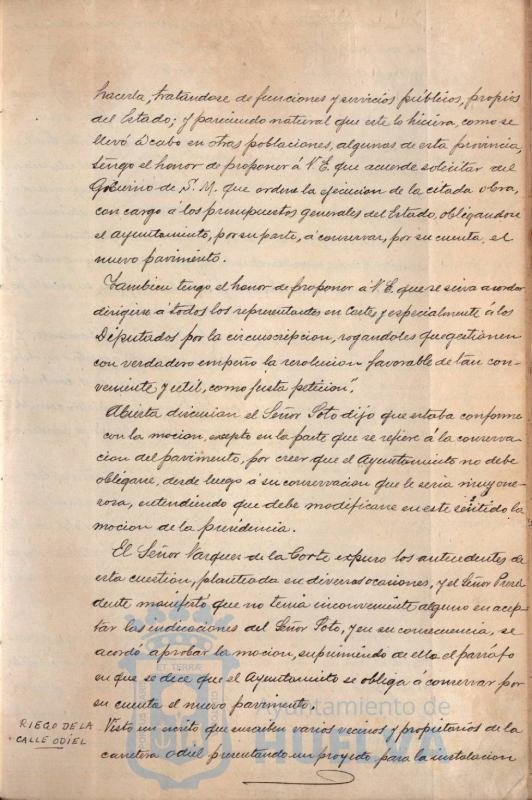 hacerla, tratándose de funciones y servicios públicos, propios
del Estado; y pareciendo natural que este lo hiciera, como se
llevó á cabo en otras poblaciones, algunas de esta provincia,
tengo el honor de proponer á V. E. que acuerde solicitar del
Gobierno de S. M. que ordene la ejecucion de la citada obra,
con cargo á los presupuestos generales del Estado, obligandose
el Ayuntamiento, por su parte, á conservar, por su cuenta, el
nuevo pavimento.
Tambien tengo el honor de proponer á V. E. que se sirva acordar
dirigirse á todos los representantes en Cortes y especialmente á los
Diputados por la circunscripcion, rogandoles que gestionen
con verdadero empeño la resolucion favorable de tan con-
veniente y util, como justa peticion".
Abierta discusion el Señor Soto dijo que estaba conforme
con la mocion, excepto en la parte que se refiere á la conserva-
cion del pavimento, por creer que el Ayuntamiento no debe
obligarse, desde luego á su conservacion que le seria muy one-
rosa, entendiendo que debe modificarse en este sentido la
mocion de la presidencia.
El Señor Vazquez de la Corte expuso los antecedentes de
esta cuestion, planteada en diversas ocasiones, y el Señor Presi-
dente manifestó que no tenia inconveniente alguno en acep-
tar las indicaciones del Señor Soto, y en su consecuencia, se
acordó aprobar la mocion, suprimiendo de ella el párrafo
en que se dece que el Ayuntamiento se obliga á conservar por
su cuenta el nuevo pavimento.
RIEGO DE LA
CALLE ODIEL
Visto un escrito que suscriben varios vecinos y propietarios de la
carretera Odiel presentando un proyecto para la instalacion
Ayuntamiento de
HUELVA